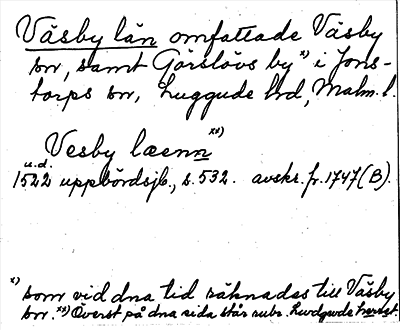 Väsby län omfattade Väsby
sn, samt Görslövs by x) i Jons-
torps sn, Luggude hd, Malm. l.
Vesby læenn xx)
u.d.
1522 uppbördsjb., s. 532. avskr. fr. 1747 (B).
x) som vid dna tid räknades till Väsby
sn. xx) Överst på dna sida står rubr. Lwdgwds herret.